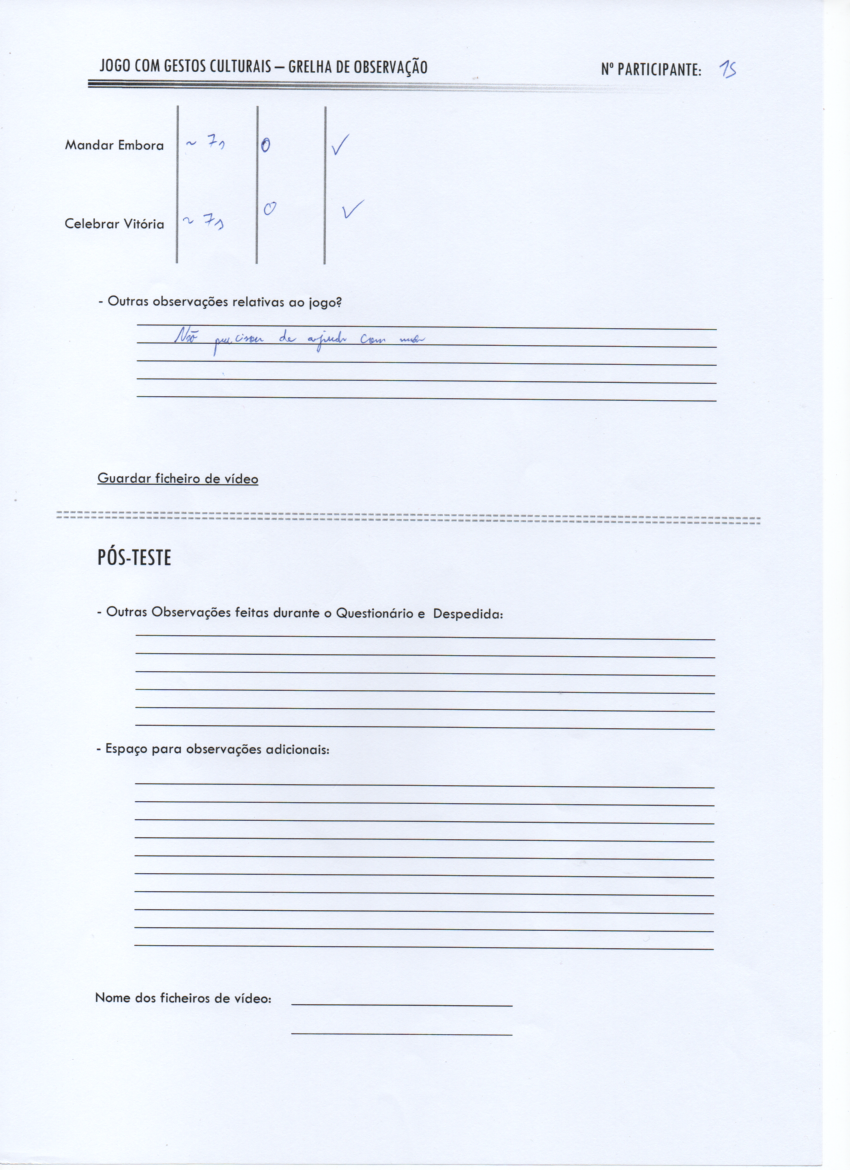 JOGO COM GESTOS CULTURAIS – GRELHA DE OBSERVAÇÃO Nº PARTICIPANTE: 15
Mandar Embora ~ 7s 0 ✓
Celebrar Vitória ~ 7s 0 ✓
- Outras observações relativas ao jogo?
Não precisou de ajuda com
Guardar ficheiro de vídeo
PÓS-TESTE
- Outras Observações feitas durante o Questionário e Despedida:
- Espaço para observações adicionais:
Nome dos ficheiros de vídeo: